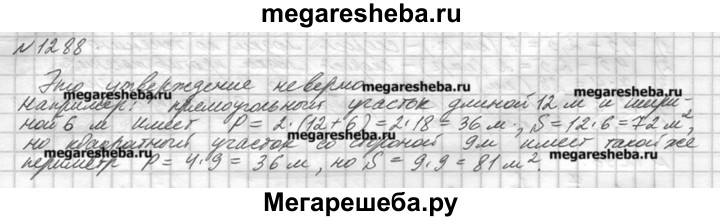 megaresheba.ru
N 1288
Это утверждение неверно megaresheba.ru
megaresheba.ru Например: прямоугольный участок длиной 12 м и шири-
ной 6 м имеет P = 2·(12+6) = 2·18 = 36 м, S = 12·6 = 72 м²,
но квадратный участок со стороной 9м имеет такой же
megaresheba.ru megaresheba.ru
периметр P = 4·9 = 36 м, но S = 9·9 = 81 м².
megaresheba.ru
Мегарешеба.ру